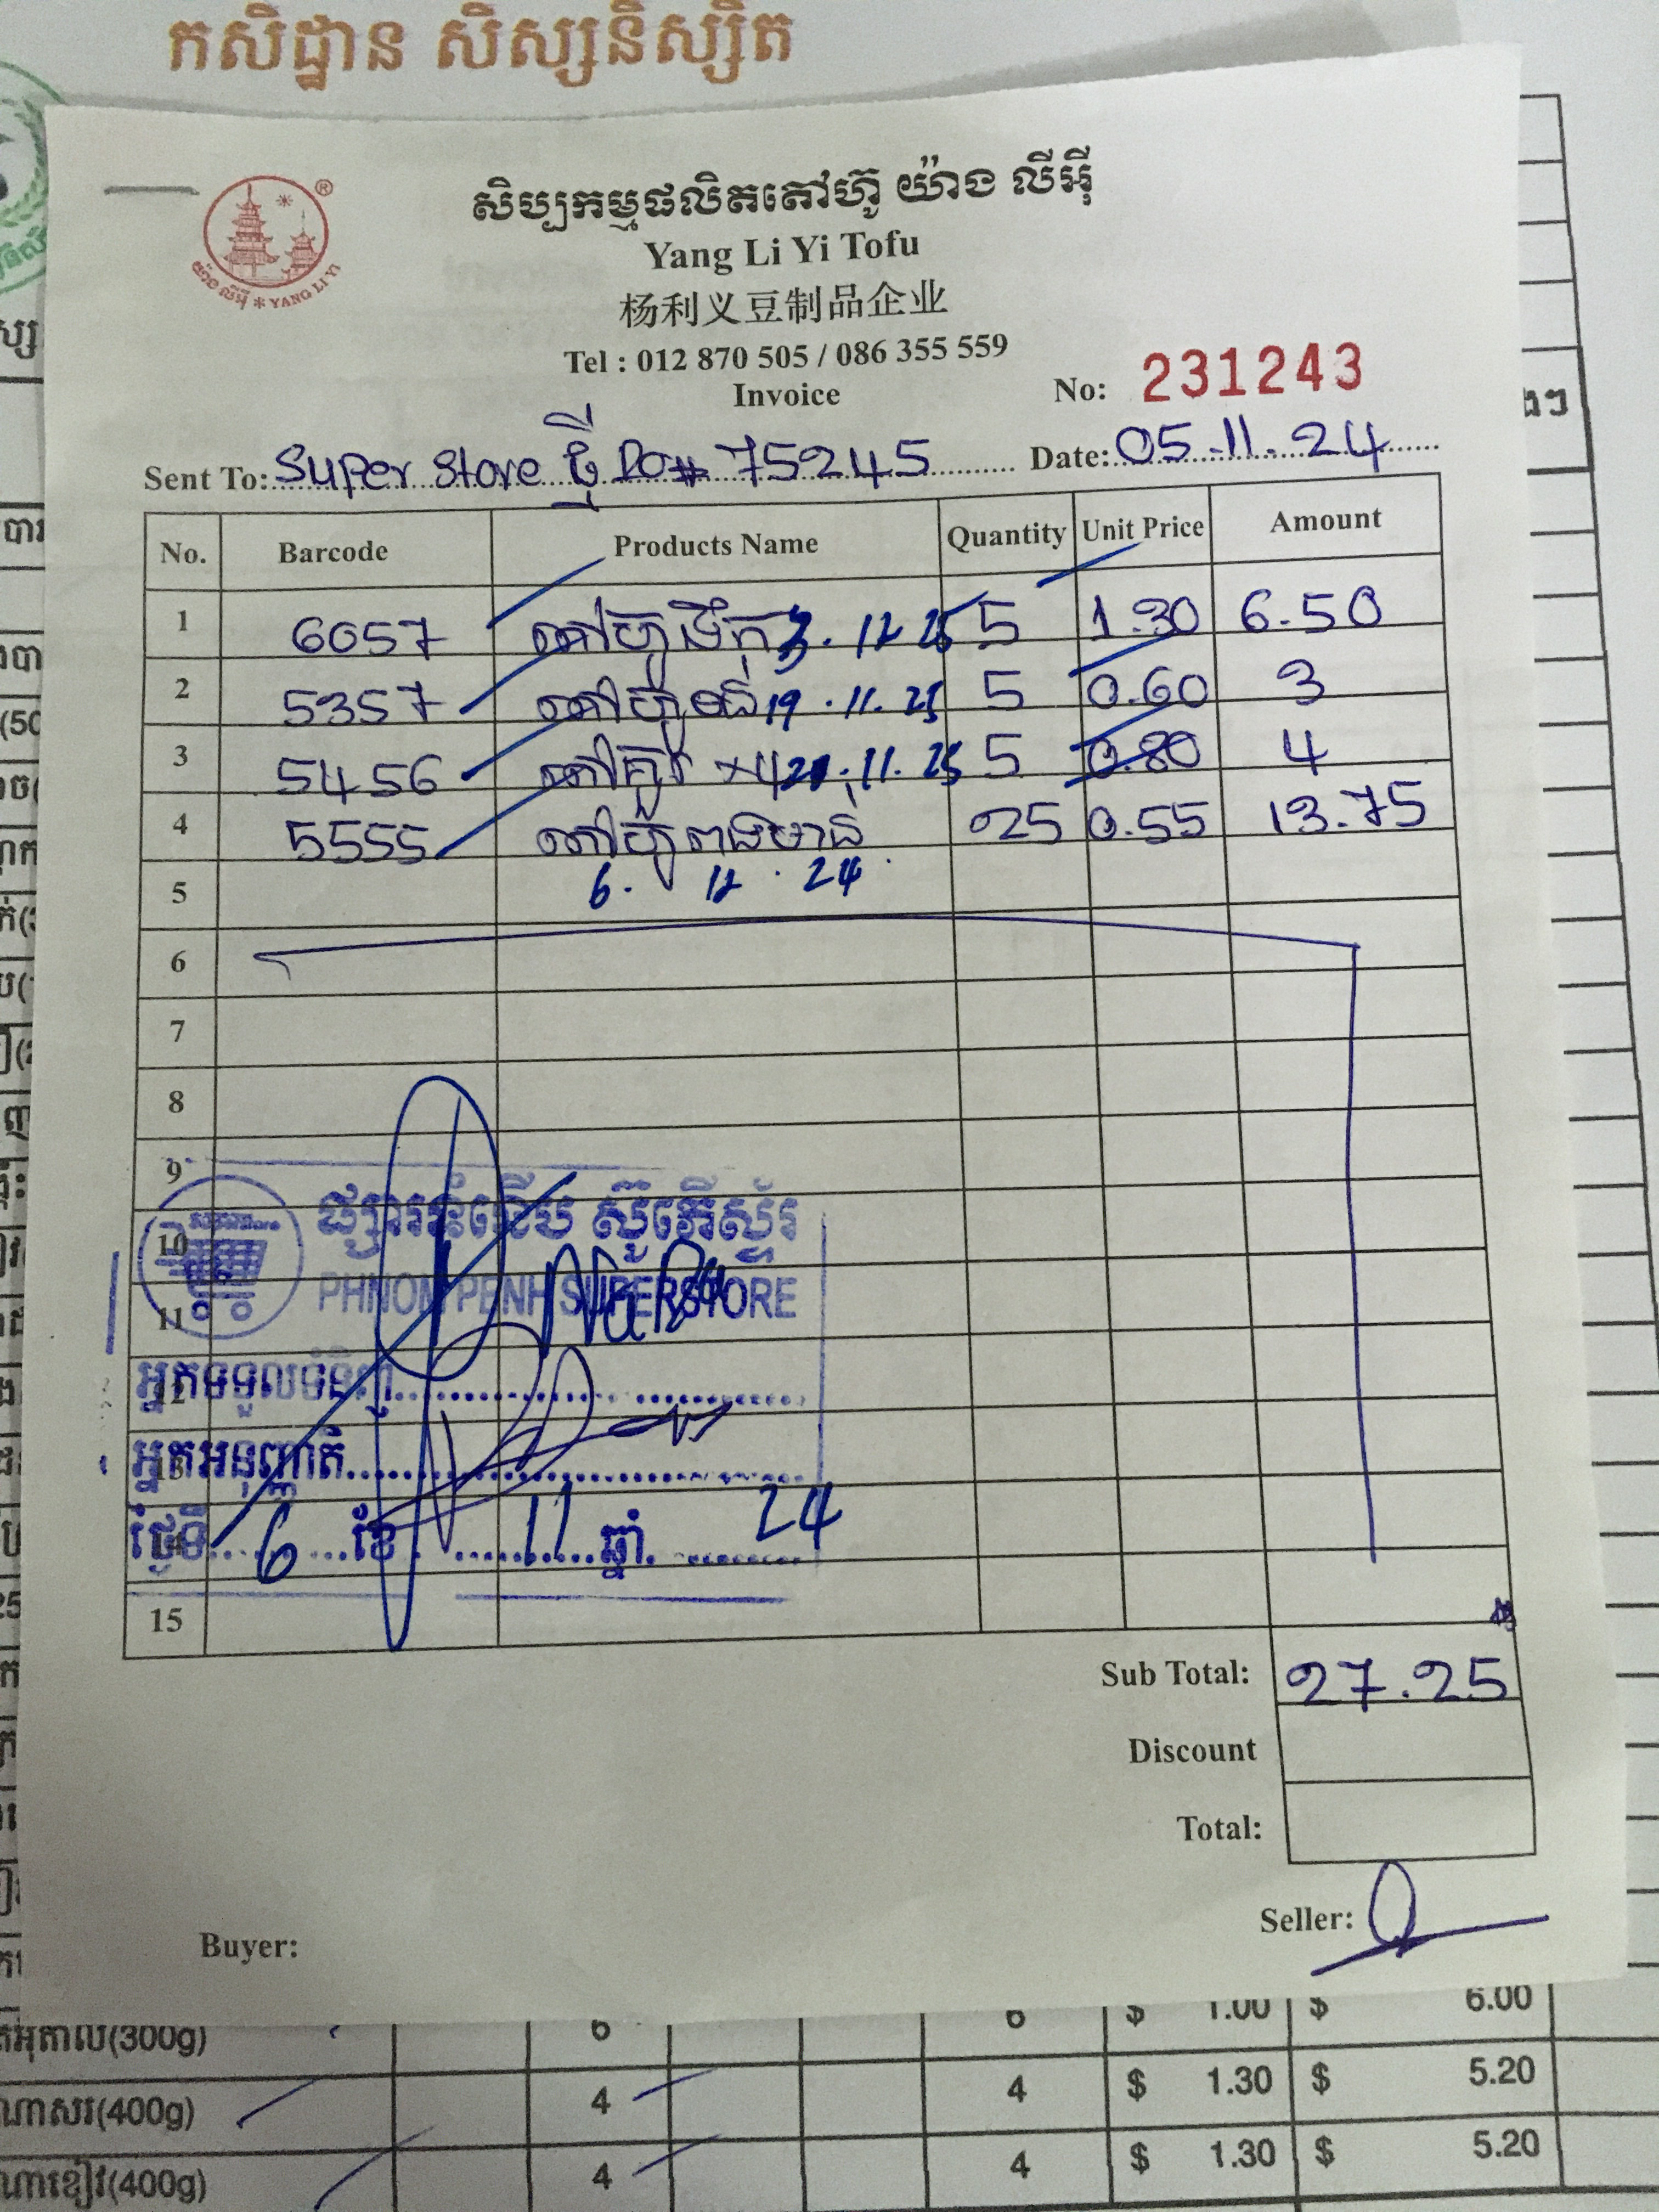 កសិដ្ឋាន សិស្សនិស្សិត
សិប្បកម្មផលិតតៅហ៊ូ យ៉ាង លីអ៊ី
Yang Li Yi Tofu
杨利义豆制品企业
Tel : 012 870 505 / 086 355 559
Invoice
No: 231243
យ៉ាង លីអ៊ី * YANG LI YI
®
Sent To: Super Store ថ្មី PO# 75245 Date: 05.11.24
No. Barcode Products Name Quantity Unit Price Amount
1 6057 តៅហ៊ូទឹក 3.12 25 5 1.30 6.50
2 5357 តៅហ៊ូ 19.11.25 5 0.60 3
3 5456 .11.25 5 0.80 4
4 5555 តៅហ៊ូពងមាន់ 25 0.55 13.75
5 6. 12. 24
6
7
8
9
10 ផ្សារទំនើប ស៊ូភើស្ទ័រ
11 PHNOM PENH SUPERSTORE
12 អ្នកទទួលទំនិញ
13 អ្នកអនុញ្ញាតិ
ថ្ងៃទី 6 ខែ 11 ឆ្នាំ 24
15
Sub Total: 27.25
Discount
Total:
Seller:
Buyer:
(300g) 6 6 $ 1.00 $ 6.00
ណាសរ(400g) 4 4 $ 1.30 $ 5.20
ណាខៀវ(400g) 4 4 $ 1.30 $ 5.20